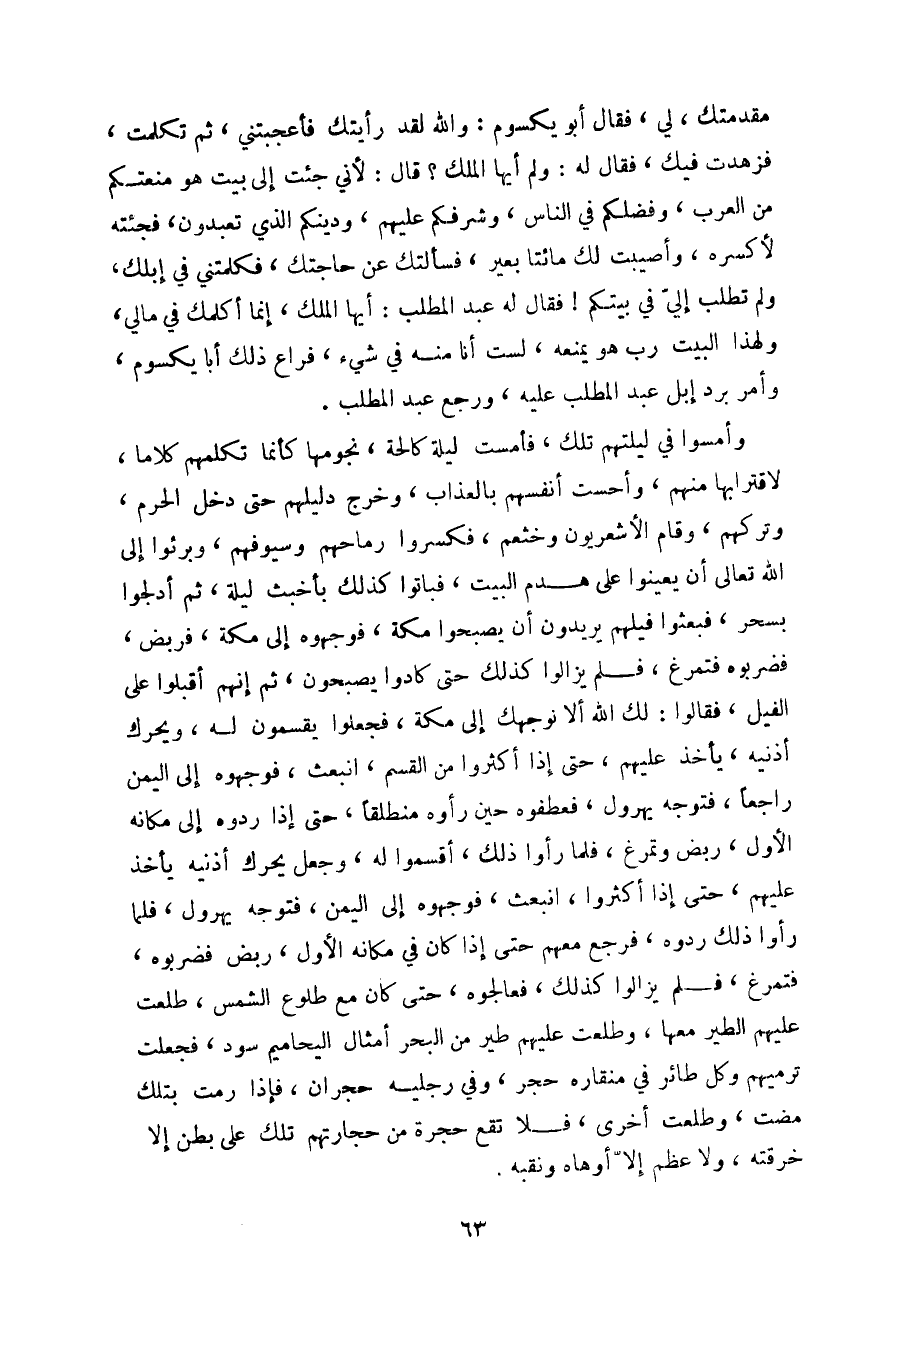 مقدمتك ، لي ، فقال أبو يكسوم : والله لقد رأيتك فأعجبتني ، ثم تكلمت ،
فزهدت فيك ، فقال له : ولم أيها الملك ؟ قال : لأني جئت إلى بيت هو منعتـكم
من العرب ، وفضلكم في الناس ، وشرفكم عليهم ، ودينكم الذي تعبدون، فجئته
لأكسره ، وأصيبت لك مائتا بعير ، فسألتك عن حاجتك ، فكلمتني في إبلك،
ولم تطلب إليّ في بيتكم ! فقال له عبد المطلب : أيها الملك ، إنما أكلمك في مالي،
ولهذا البيت رب هو يمنعه ، لست أنا منــه في شيء ، فراع ذلك أبا يكسوم ،
وأمر برد إبل عبد المطلب عليه ، ورجع عبد المطلب .
وأمسوا في ليلتهم تلك ، فأمست ليلة كالحة ، نجومها كأنما تكلمهم كلاما ،
لاقترابها منهم ، وأحست أنفسهم بالعذاب ، وخرج دليلهم حتى دخل الحرم ،
وتركهم ، وقام الأشعريون وخثعم ، فكسروا رماحهم وسيوفهم ، وبرئوا إلى
الله تعالى أن يعينوا على هــدم البيت ، فباتوا كذلك بأخبث ليلة ، ثم أدلجوا
بسحر ، فبعثوا فيلهم يريدون أن يصبحوا مكة ، فوجهوه إلى مكة ، فربض ،
فضربوه فتمرغ ، فــلم يزالوا كذلك حتى كادوا يصبحون ، ثم إنهم أقبلوا على
الفيل ، فقالوا : لك الله ألا نوجهك إلى مكة ، فجعلوا يقسمون لــه ، ويحرك
أذنيه ، يأخذ عليهم ، حتى إذا أكثروا من القسم ، انبعث ، فوجهوه إلى اليمن
راجعاً ، فتوجه يهرول ، فعطفوه حين رأوه منطلقاً ، حتى إذا ردوه إلى مكانه
الأول ، ربض وتمرغ ، فلما رأوا ذلك ، أقسموا له ، وجعل يحرك أذنيه يأخذ
عليهم ، حتى إذا أكثروا ، انبعث ، فوجهوه إلى اليمن ، فتوجه يهرول ، فلما
رأوا ذلك ردوه ، فرجع معهم حتى إذا كان في مكانه الأول ، ربض فضربوه ،
فتمرغ ، فــلم يزالوا كذلك ، فعالجوه ، حتى كان مع طلوع الشمس ، طلعت
عليهم الطير معها ، وطلعت عليهم طير من البحر أمثال اليحاميم سود ، فجعلت
ترميهم وكل طائر في منقاره حجر ، وفي رجليــه حجران ، فإذا رمت بتلك
مضت ، وطلعت أخرى ، فــلا تقع حجرة من حجارتهم تلك على بطن إلا
خرقته ، ولا عظم إلاّ أوهاه ونقبه .
٦٣